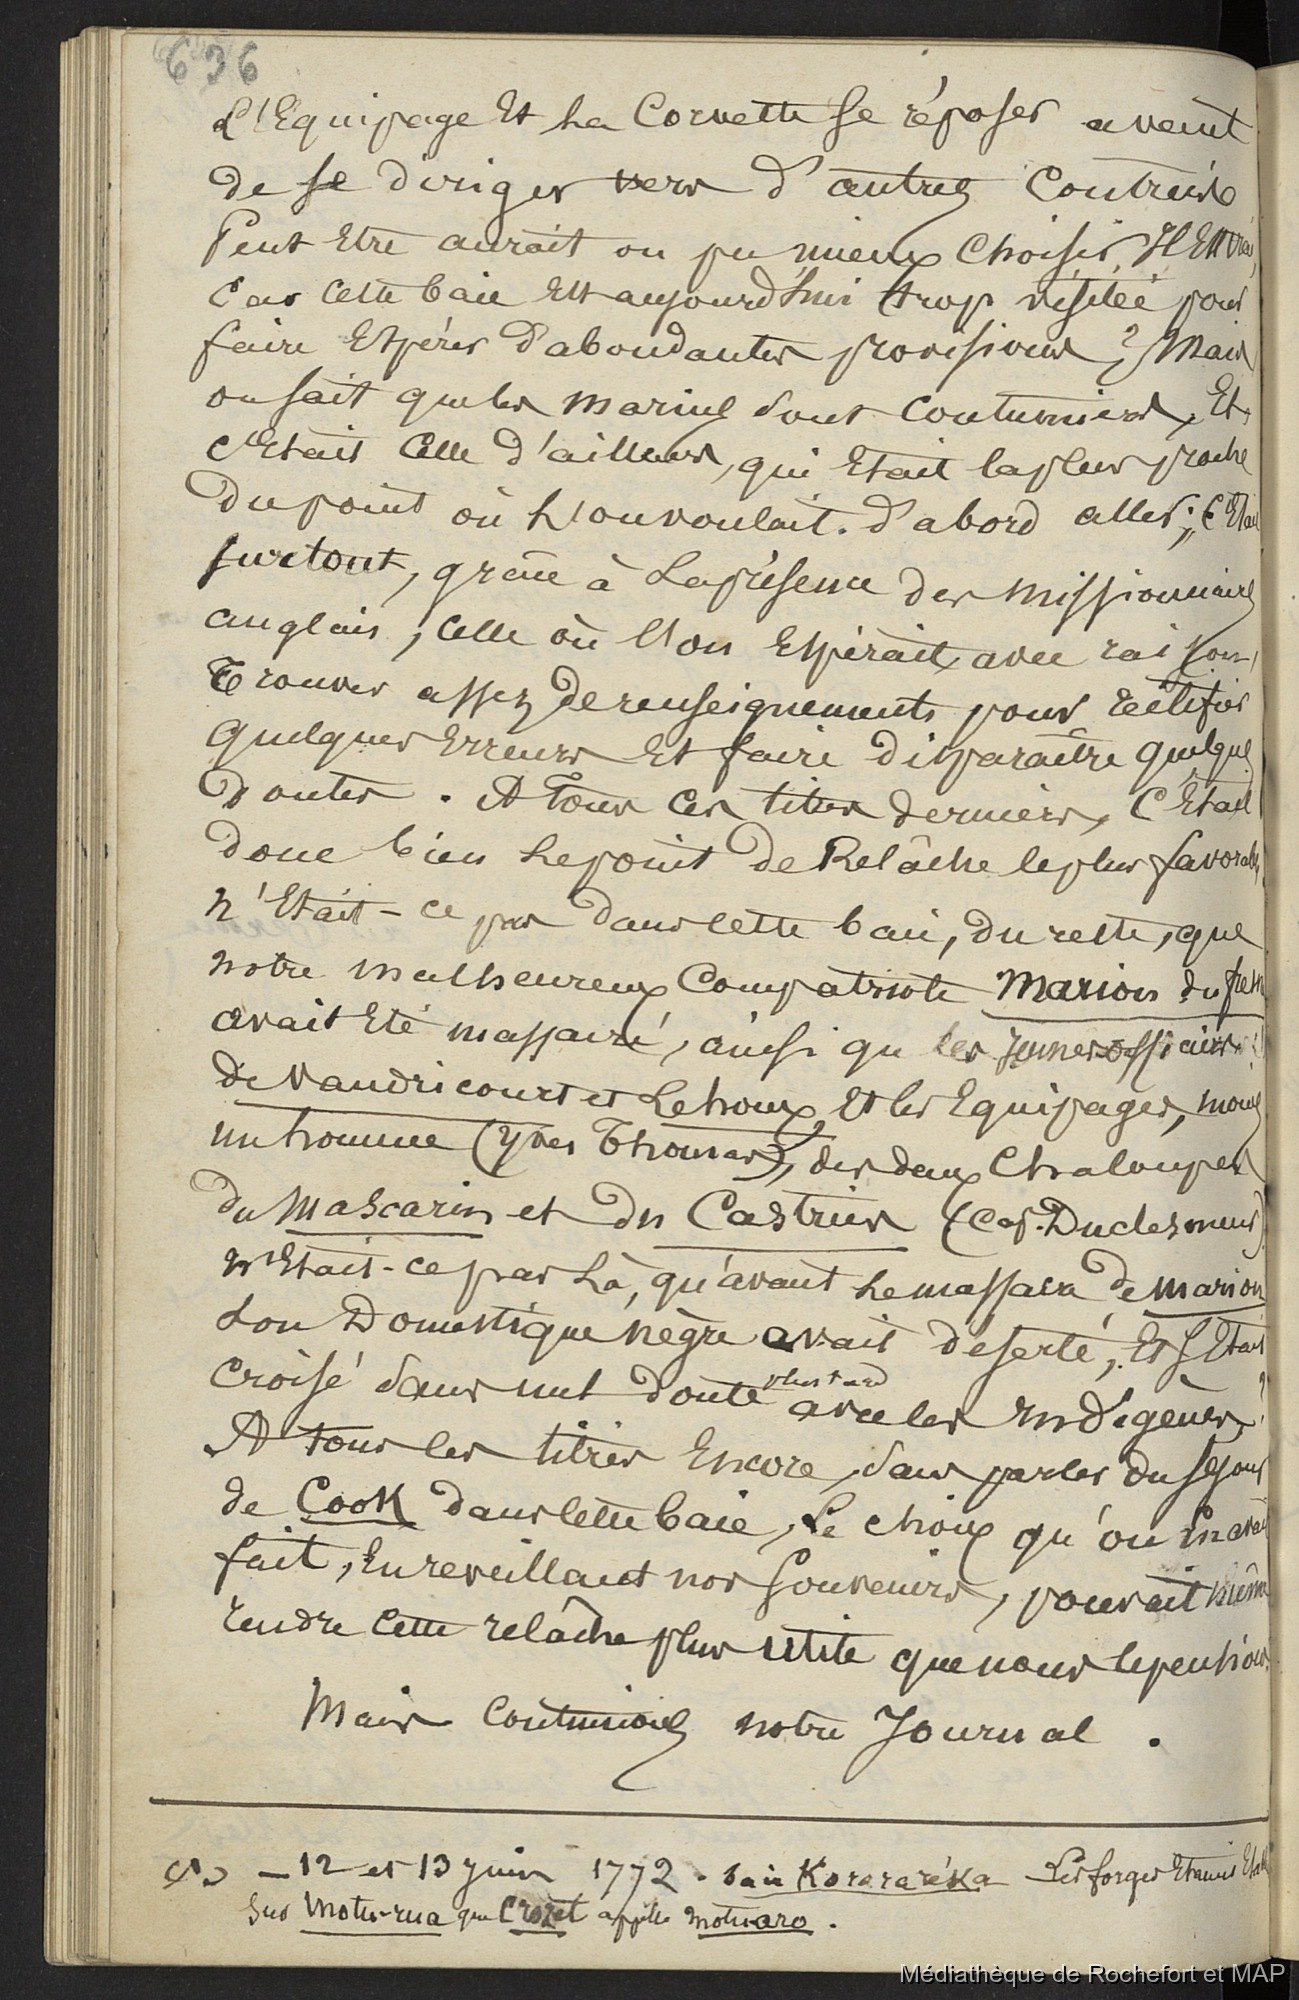 636
L'Equipage Et La Corvette se réposer avant
de se diriger vers d'autres Contrées
Peut Etre aurait on pu mieux Choisir, Il Est vrai,
Car cette baie Est aujourd'hui trop visitée pour
faire Espérer d'abondantes provisions? Mais
on sait que les marins sont coutumiers, Et
c'Etait Celle d'ailleurs, qui Etait la plus proche
Du point où L'on voulait d'abord aller; C'Etait
surtout, grâce à La présence des missionnaires
anglais, celle où l'on Espérait, avec raison,
Trouver assez de renseignements pour rectifier
quelques Erreurs Et faire disparaître quelques
Doutes. A Tous ces titres derniers, C'Etait
donc bien Le point de Relâche le plus favorable
N'Etait-ce pas dans cette baie, du reste, que
notre malheureux Compatriote Marion du fresn
avait Eté massacré, ainsi que les jeunes officiers
de Vaudricourt et Lehoux, Et les Equipages, moins
un homme (Yves Thomas), des deux Chaloupes
du Mascarin et du Castries (Cap. Duclesmeur)
N'Etait-ce pas Là, qu'avant Le massacre de Marion
son Domestique nègre avait déserté, Et s'Etait
croisé sans nul doute plus tard avec les Indigènes?
A tous les titres Encore, sans parler du séjour
de Cook dans cette baie, Le choix qu'on En avait
fait, En reveillant nos souvenirs, pouvait même
rendre cette relâche plus utile que nous le pensions
Mais Continuons notre Journal.
(1) — 12 et 13 juin 1772. baie Kororaréka Les forges Etaient Etabl
sur Motu-rua que Crozet appelle motuaro.
Médiathèque de Rochefort et MAP